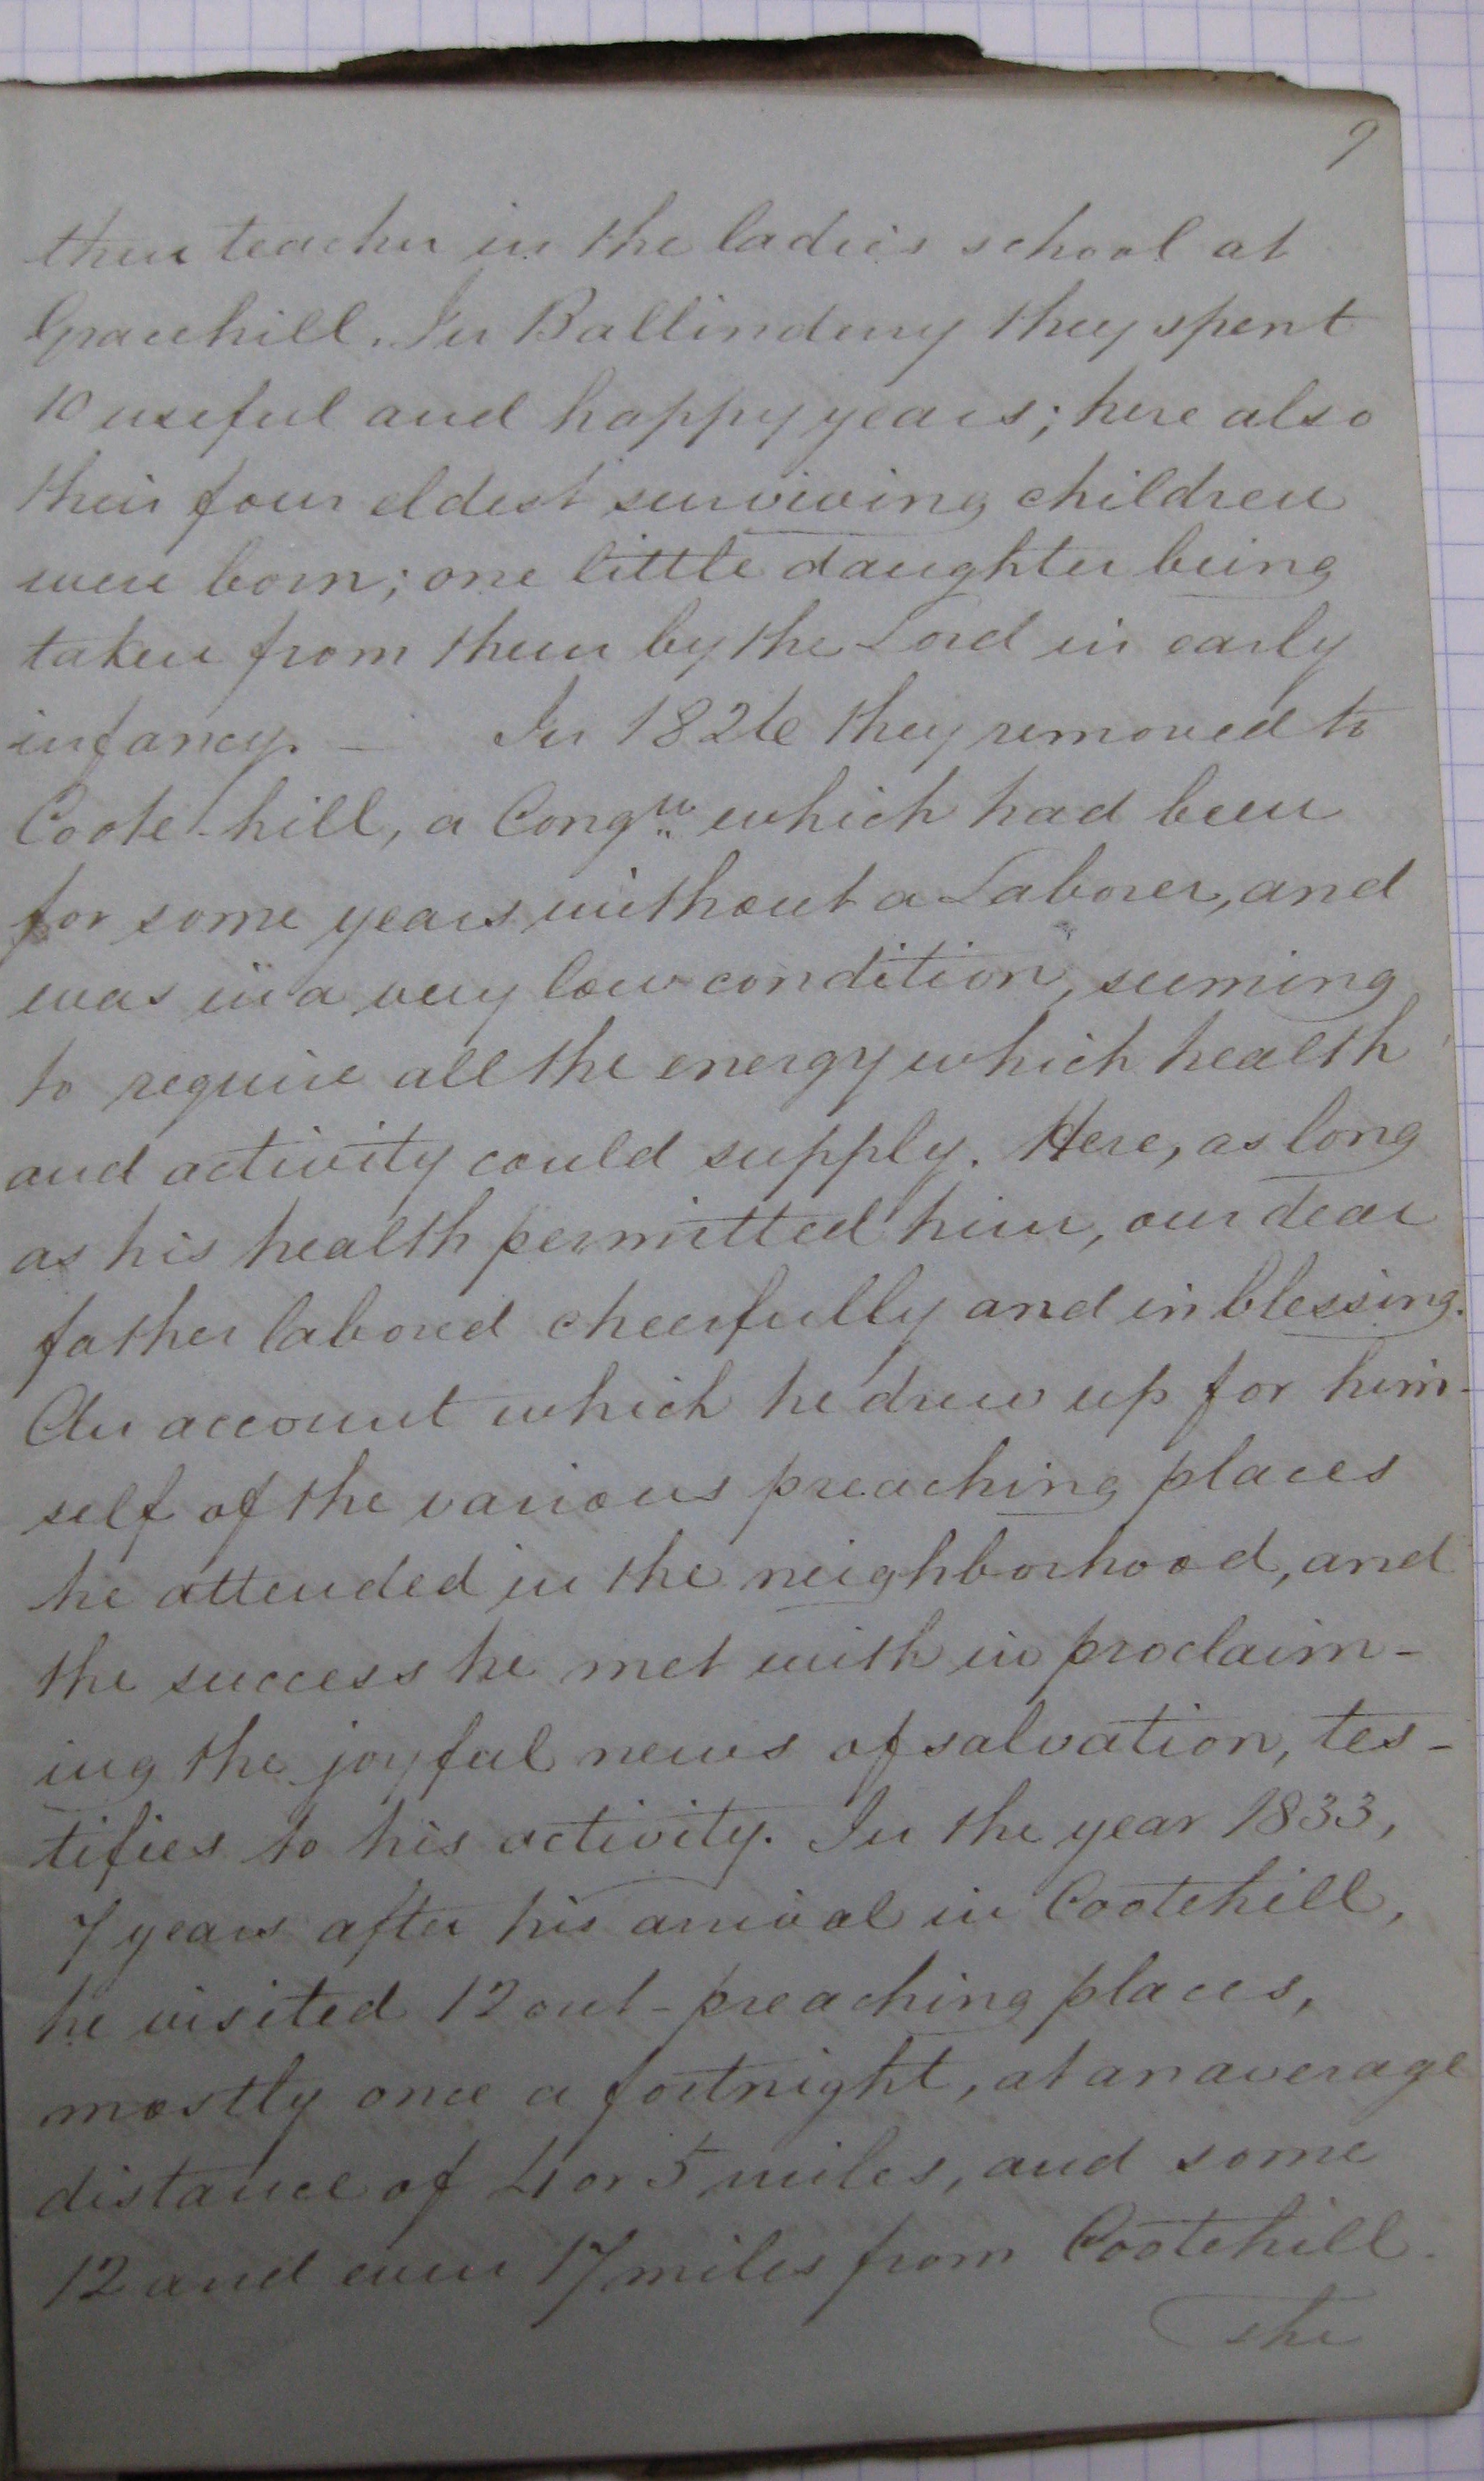 9
then teacher in the ladies school at
Gracehill. In Ballinderry they spent
10 useful and happy years; here also
their four eldest surviving children
were born; one little daughter being
taken from them by the Lord in early
infancy. — In 1826 they removed to
Cootehill, a Congn. which had been
for some years without a Laborer, and
was in a very low condition, seeming
to require all the energy which health
and activity could supply. Here, as long
as his health permitted him, our dear
father labored cheerfully and in blessing.
An account which he drew up for him-
self of the various preaching places
he attended in the neighborhood, and
the success he met with in proclaim-
ing the joyful news of salvation, tes-
tifies to his activity. In the year 1833,
7 years after his arrival in Cootehill,
he visited 12 out-preaching places,
mostly once a fortnight, at an average
distance of 4 or 5 miles, and some
12 and even 17 miles from Cootehill.
The